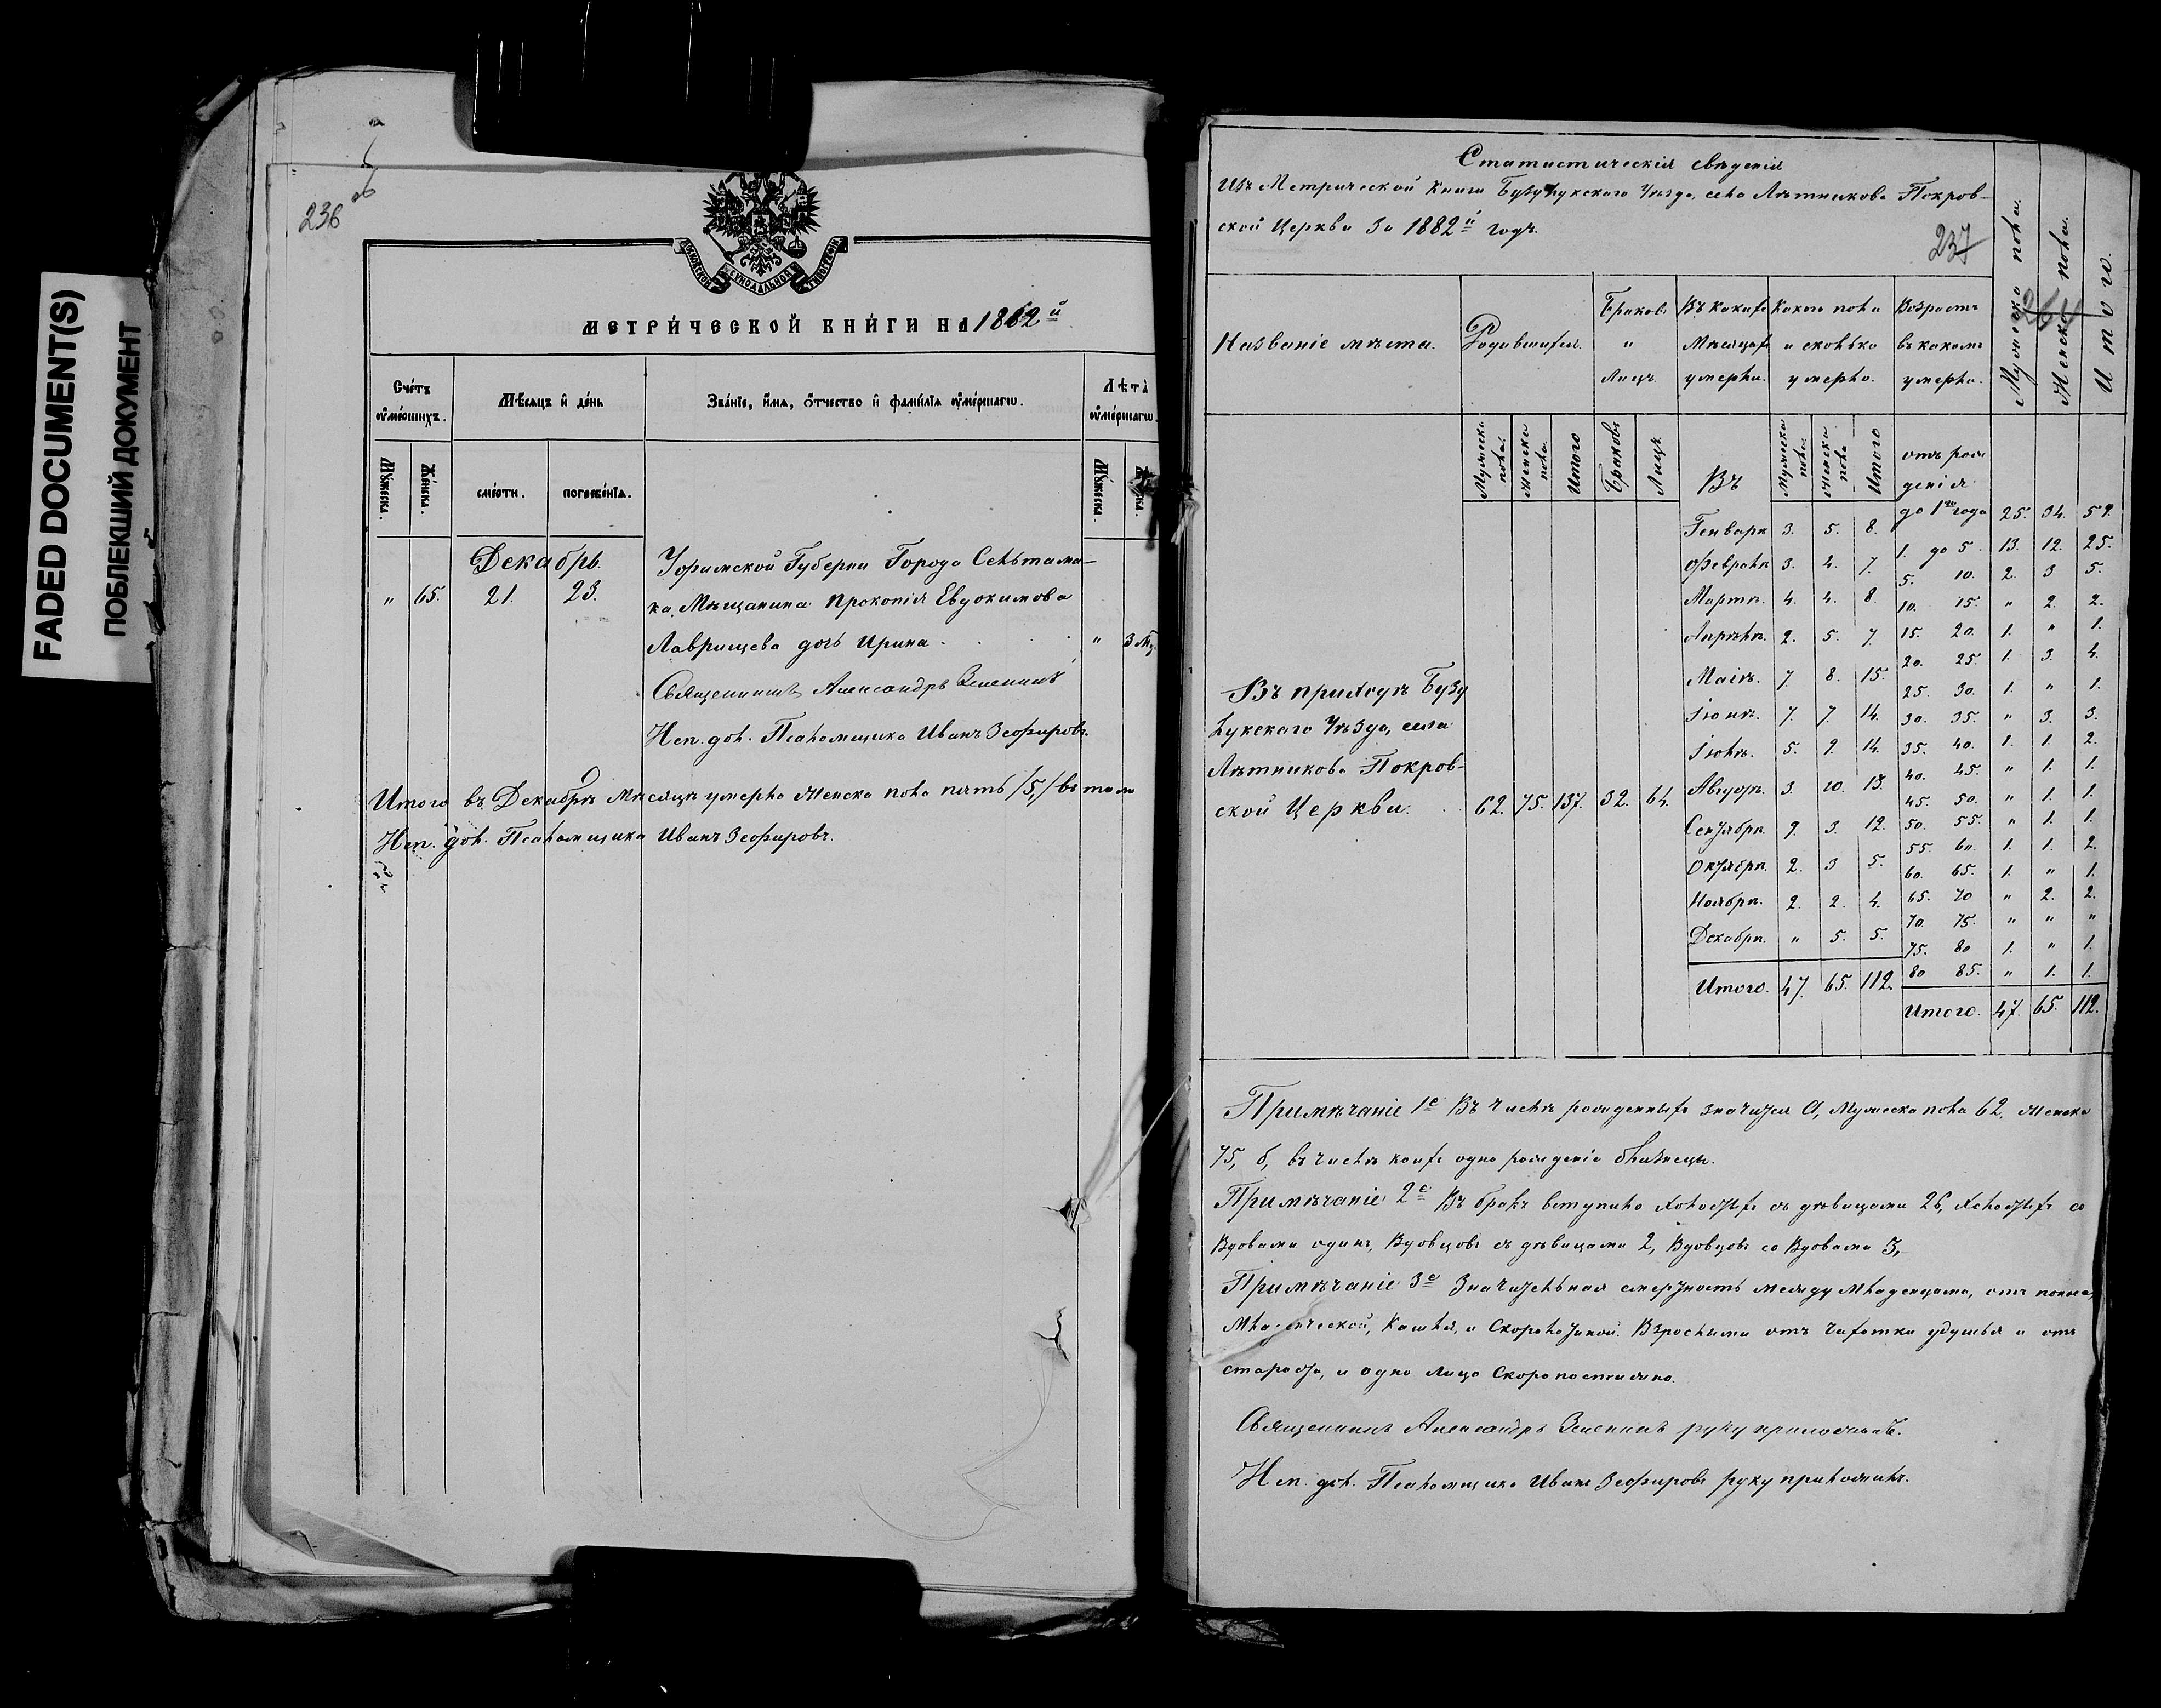 FADED DOCUMENT(S)
ПОБЛЕКШИЙ ДОКУМЕНТ
236 об
МОСКОВСКОЙ СѴНОДАЛЬНОЙ ТИПОГРАФІИ
МЕТРИ́ЧЕСКОЙ КНИ́ГИ НА 1882й
Сче́тъ ᲂу҆ме́ршихъ.
Мѣ́сяцъ и҆ де́нь
Зва́нїе, и҆́мѧ, ѻ҆́тчество и҆ фами́лїѧ ᲂу҆ме́ршагѡ.
Лѣ̑та ᲂу҆ме́ршагѡ.
Мꙋ́жеска.
Же́нска.
сме́рти.
погребе́нїѧ.
Мꙋ́жеска.
Декабрь.
Уфимской Губерніи Города Сельтама-
" 65. 21. 23. ка, Мѣщанина Прокопія Евдокимова
Лаврищева дочь Ирина " 3 м.
Священникъ Александръ
Исп. дол. Псаломщика Иванъ Зефировъ.
Итого въ Декабрѣ Мѣсяцѣ умерло женска пола пять /5,/ въ томъ
Исп. дол. Псаломщика Иванъ Зефировъ.
Статистическія свѣденія
Изъ Метрической книги Бузулукскаго Уѣзда, села Лѣтникова Покров-
ской Церкви за 1882й годъ.
237
Названіе мѣста.
Родившихся.
Браковъ " лицъ
Въ какихъ Мѣсяцахъ умерли.
Какого пола и сколько умерло.
Возрастъ въ какомъ умерли.
Мужеска пола.
Женска пола.
Итого.
Мужеска пола. Женска пола. Итого Браковъ Лицъ. Въ Мужеска пола. Женска пола Итого
отъ рож
денія
до 1го года 25. 34. 59.
Генварѣ 3. 5. 8.
1. до 5. 13. 12. 25.
Февралѣ 3. 4. 7.
5. 10. 2. 3 5.
Мартѣ. 4. 4. 8.
10. 15. " 2. 2.
Апрѣлѣ. 2. 5. 7
15. 20. 1. " 1.
20. 25. 1. 3. 4.
Маіѣ. 7. 8. 15.
25. 30. 1. " 1.
Іюнѣ. 7. 7. 14.
30. 35. " 3. 3.
Іюлѣ. 5. 9. 14.
35. 40. 1. 1. 2.
40. 45. " 1. 1.
Августѣ. 3. 10. 13.
45. 50. " 1. 1.
Сентябрѣ. 9. 3. 12.
50. 55. " 1. 1.
55. 60. 1. 1. 2.
Октябрѣ. 2. 3 5.
60. 65. 1. " 1.
Ноябрѣ. 2. 2. 4.
65. 70 " 2. 2.
70. 75. " " "
Декабрѣ. " 5. 5.
75. 80 1. " 1.
80 85. " 1. 1.
Итого. 47. 65. 112.
Итого. 47. 65. 112.
Въ приходѣ Бузу
лукскаго Уѣзда, села
Лѣтникова Покров-
ской Церкви. 62. 75. 137. 32. 64.
Примѣчаніе 1е Въ числѣ рожденныхъ значится а, Мужеска пола 62, женска
75, б, въ числѣ коихъ одно рожденіе близнецы.
Примѣчаніе 2е Въ бракъ вступило холостыхъ съ дѣвицами 26, холостыхъ со
Вдовами одинъ, Вдовцовъ съ дѣвицами 2, Вдовцовъ со Вдовами 3,
Примѣчаніе 3е Значительная смертность между младенцами, отъ поноса,
младенческой, Кашля, и Скоротечной. Взрослыми отъ чахотки удушья и отъ
старости, и одно лицо Скоропостижно.
Священникъ Александръ руку приложилъ.
Исп. дол. Псаломщика Иванъ Зефировъ руку приложилъ.